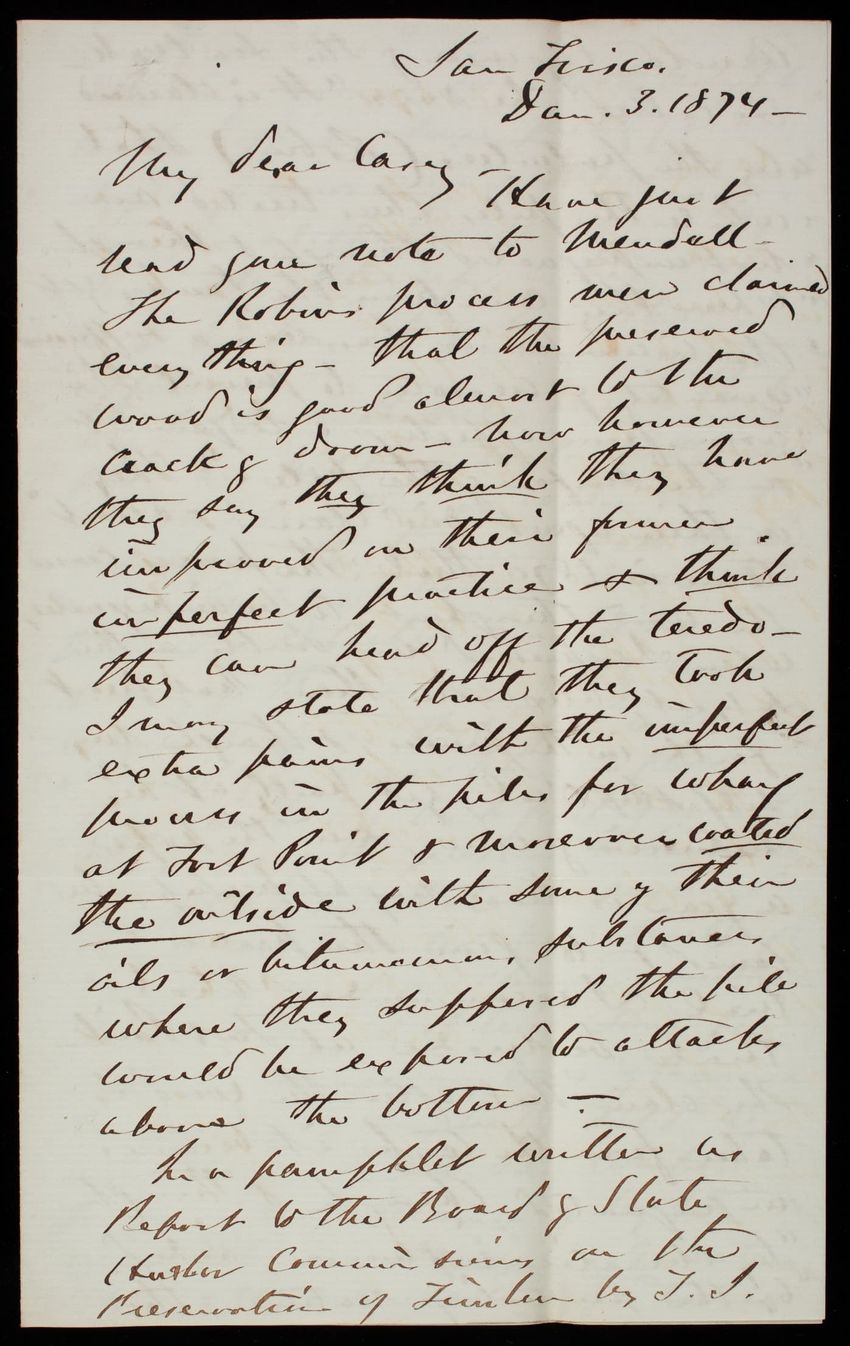 San Frisco.
Jan. 3. 1874 –
My dear Casey –
Have just
read your note to Mendell –
The Robins process men claimed
everything – that the preserved
wood is good almost to the
crack of doom – now however
they say they think they have
improved on their former
imperfect practice & think
they can head off the teredo –
I may state that they took
extra pains with the imperfect
process in the piles for wharf
at Fort Point & moreover coated
the outside with some of their
oils or bitumenous substances
where they supposed the pile
would be exposed to attacks
above the bottom –
In a pamphlet written as
Report to the Board of State
Harbor Commissioners on the
Preservation of Timber by T. J.